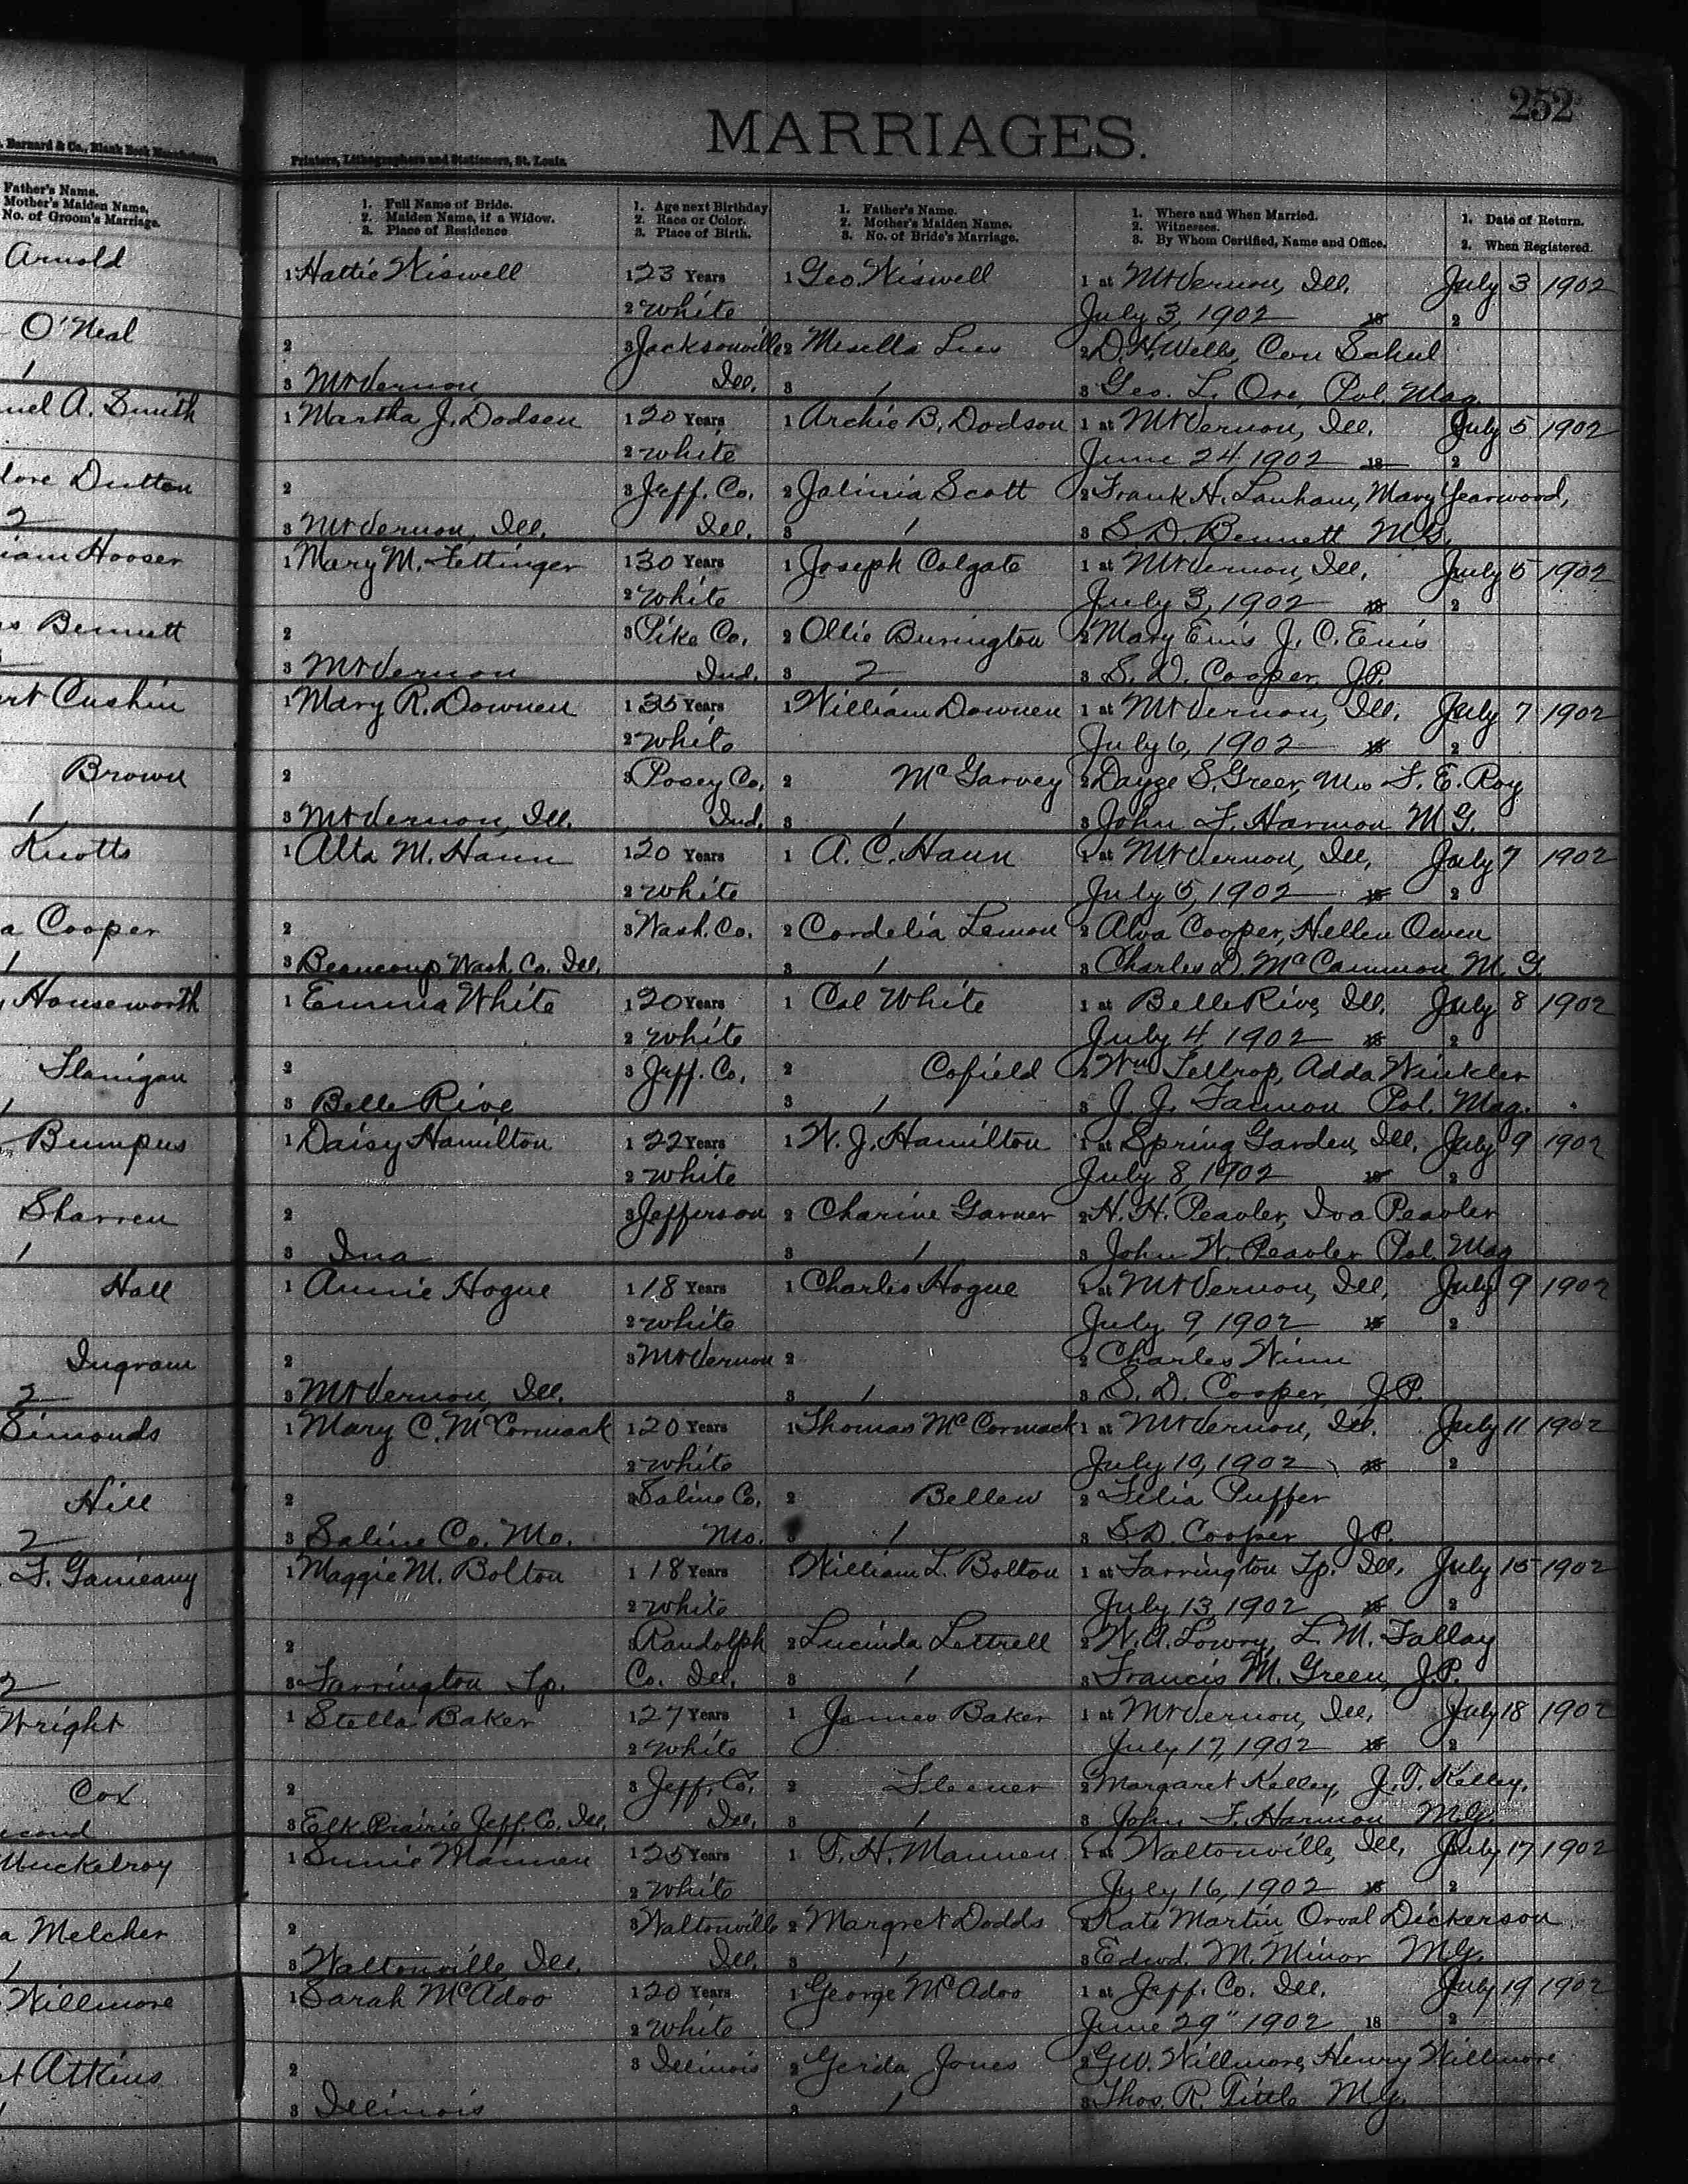 252
MARRIAGES.
Barnard & Co., Blank Book Manufacturers,
Printers, Lithographers and Stationers, St. Louis.
Father's Name.
Mother's Maiden Name.
No. of Groom's Marriage.
1. Full Name of Bride.
2. Maiden Name, if a Widow.
3. Place of Residence
1. Age next Birthday
2. Race or Color.
3. Place of Birth.
1. Father's Name.
2. Mother's Maiden Name.
3. No. of Bride's Marriage.
1. Where and When Married.
2. Witnesses.
3. By Whom Certified, Name and Office.
1. Date of Return.
2. When Registered.
Arnold
1 Hattie Wiswell 1 23 Years 1 Geo. Wiswell 1 at Mt Vernon, Ill. July 3 1902
2 White July 3, 1902 18 2
O'Neal
2 3 Jacksonville 2 2 D. H. Wells, Con Schul
1
3 Mt Vernon Ill. 3 1 3 Geo. L. Ore, Pol. Mag.
uel A. Smith
1 Martha J. Dodson 1 20 Years 1 Archie B. Dodson 1 at Mt Vernon, Ill. July 5 1902
2 White June 24, 1902 18 2
lore Dutton
2 3 Jeff. Co. 2 Jalinia Scott 2 Frank H. Lanham, Mary Yearwood,
2
3 Mt Vernon, Ill. Ill. 3 1 3 S. D. Bennett M.G.
iam Hooser
1 Mary M. Fettinger 1 30 Years 1 Joseph Colgate 1 at Mt Vernon, Ill. July 5 1902
2 White July 3, 1902 18 2
s Bennett
2 3 Pike Co. 2 Ollie Burington 2 Mary Enis J. C. Enis
3 Mt Vernon Ind. 3 2 3 S. D. Cooper, J.P.
rt Cushin
1 Mary R. Downen 1 35 Years 1 William Downen 1 at Mt Vernon, Ill. July 7 1902
2 White July 6, 1902 18 2
Brown
2 3 Posey Co. 2 McGarvey 2 Dayze S. Greer, Mrs F. E. Roy
1
3 Mt Vernon, Ill. Ind. 3 1 3 John F. Harmon M G.
Knotts
1 Alta M. Haun 1 20 Years 1 A. C. Haun 1 at Mt Vernon, Ill. July 7 1902
2 White July 5, 1902 18 2
a Cooper
2 3 Wash. Co. 2 Cordelia Lemon 2 Alva Cooper, Hellen Owen
1
3 Beaucoup Wash. Co. Ill. 3 1 3 Charles D. McCammon M. G.
Houseworth
1 Emma White 1 20 Years 1 Cal White 1 at Belle Rive, Ill. July 8 1902
2 White July 4, 1902 18 2
Flanigan
2 3 Jeff. Co. 2 Cofield 2 Wm Adda Winkler
3 Belle Rive 3 1 3 J. J. Fannon Pol. Mag.
Bumpus
1 Daisy Hamilton 1 22 Years 1 W. J. Hamilton 1 at Spring Garden, Ill. July 9 1902
2 White July 8, 1902 18 2
Sharren
2 3 Jefferson 2 Charine Garner 2 H. H. Peavler, Iva Peavler
1
3 Ina 3 1 3 John W. Peavler Pol. Mag
Hall
1 Annie Hogue 1 18 Years 1 Charles Hogue 1 at Mt Vernon, Ill. July 9 1902
2 White July 9, 1902 18 2
Ingram
2 3 Mt Vernon 2 2 Charles Winn
2
3 Mt Vernon, Ill. 3 1 3 S. D. Cooper, J.P.
Simonds
1 Mary C. McCormack 1 20 Years 1 Thomas McCormack 1 at Mt Vernon, Ill. July 11 1902
2 White July 10, 1902 18 2
Hill
2 3 Saline Co. 2 Bellew 2 Lilia Puffer
2
3 Saline Co. Mo. Mo. 3 1 3 S. D. Cooper J.P.
1 Maggie M. Bolton 1 18 Years 1 William L. Bolton 1 at Farrington Tp. Ill. July 15 1902
2 White July 13, 1902 18 2
2 3 Randolph 2 Lucinda Lettrell 2 W. A. Lowry, L. M. Fallay
2
3 Farrington Tp. Co. Ill. 3 1 3 Francis M. Green, J.P.
Wright
1 Stella Baker 1 27 Years 1 James Baker 1 at Mt Vernon, Ill. July 18 1902
2 White July 17, 1902 18 2
Cox
2 3 Jeff. Co. 2 Fleener 2 Margaret Kelley, J. T. Kelley.
econd
3 Elk Prairie Jeff. Co. Ill. Ill. 3 1 3 John F. Harmon M.G.
Muckelroy
1 Sunie Mannen 1 25 Years 1 T. H. Mannen 1 at Waltonville, Ill. July 17 1902
2 White July 16, 1902 18 2
a Melcher
2 3 Waltonville 2 Margret Dodds 2 Kate Martin Orval Dickerson
1
3 Waltonville Ill. Ill. 3 1 3 Edwd. M. Minor M.G.
Willmore
1 Sarah McAdoo 1 20 Years 1 George McAdoo 1 at Jeff. Co. Ill. July 19 1902
2 White June 29" 1902 18 2
t Atkins
2 3 Illinois 2 Gerida Jones 2 G.W. Willmore, Henry Willmore
3 Illinois 3 1 3 Thos. R. Tittle M.G.